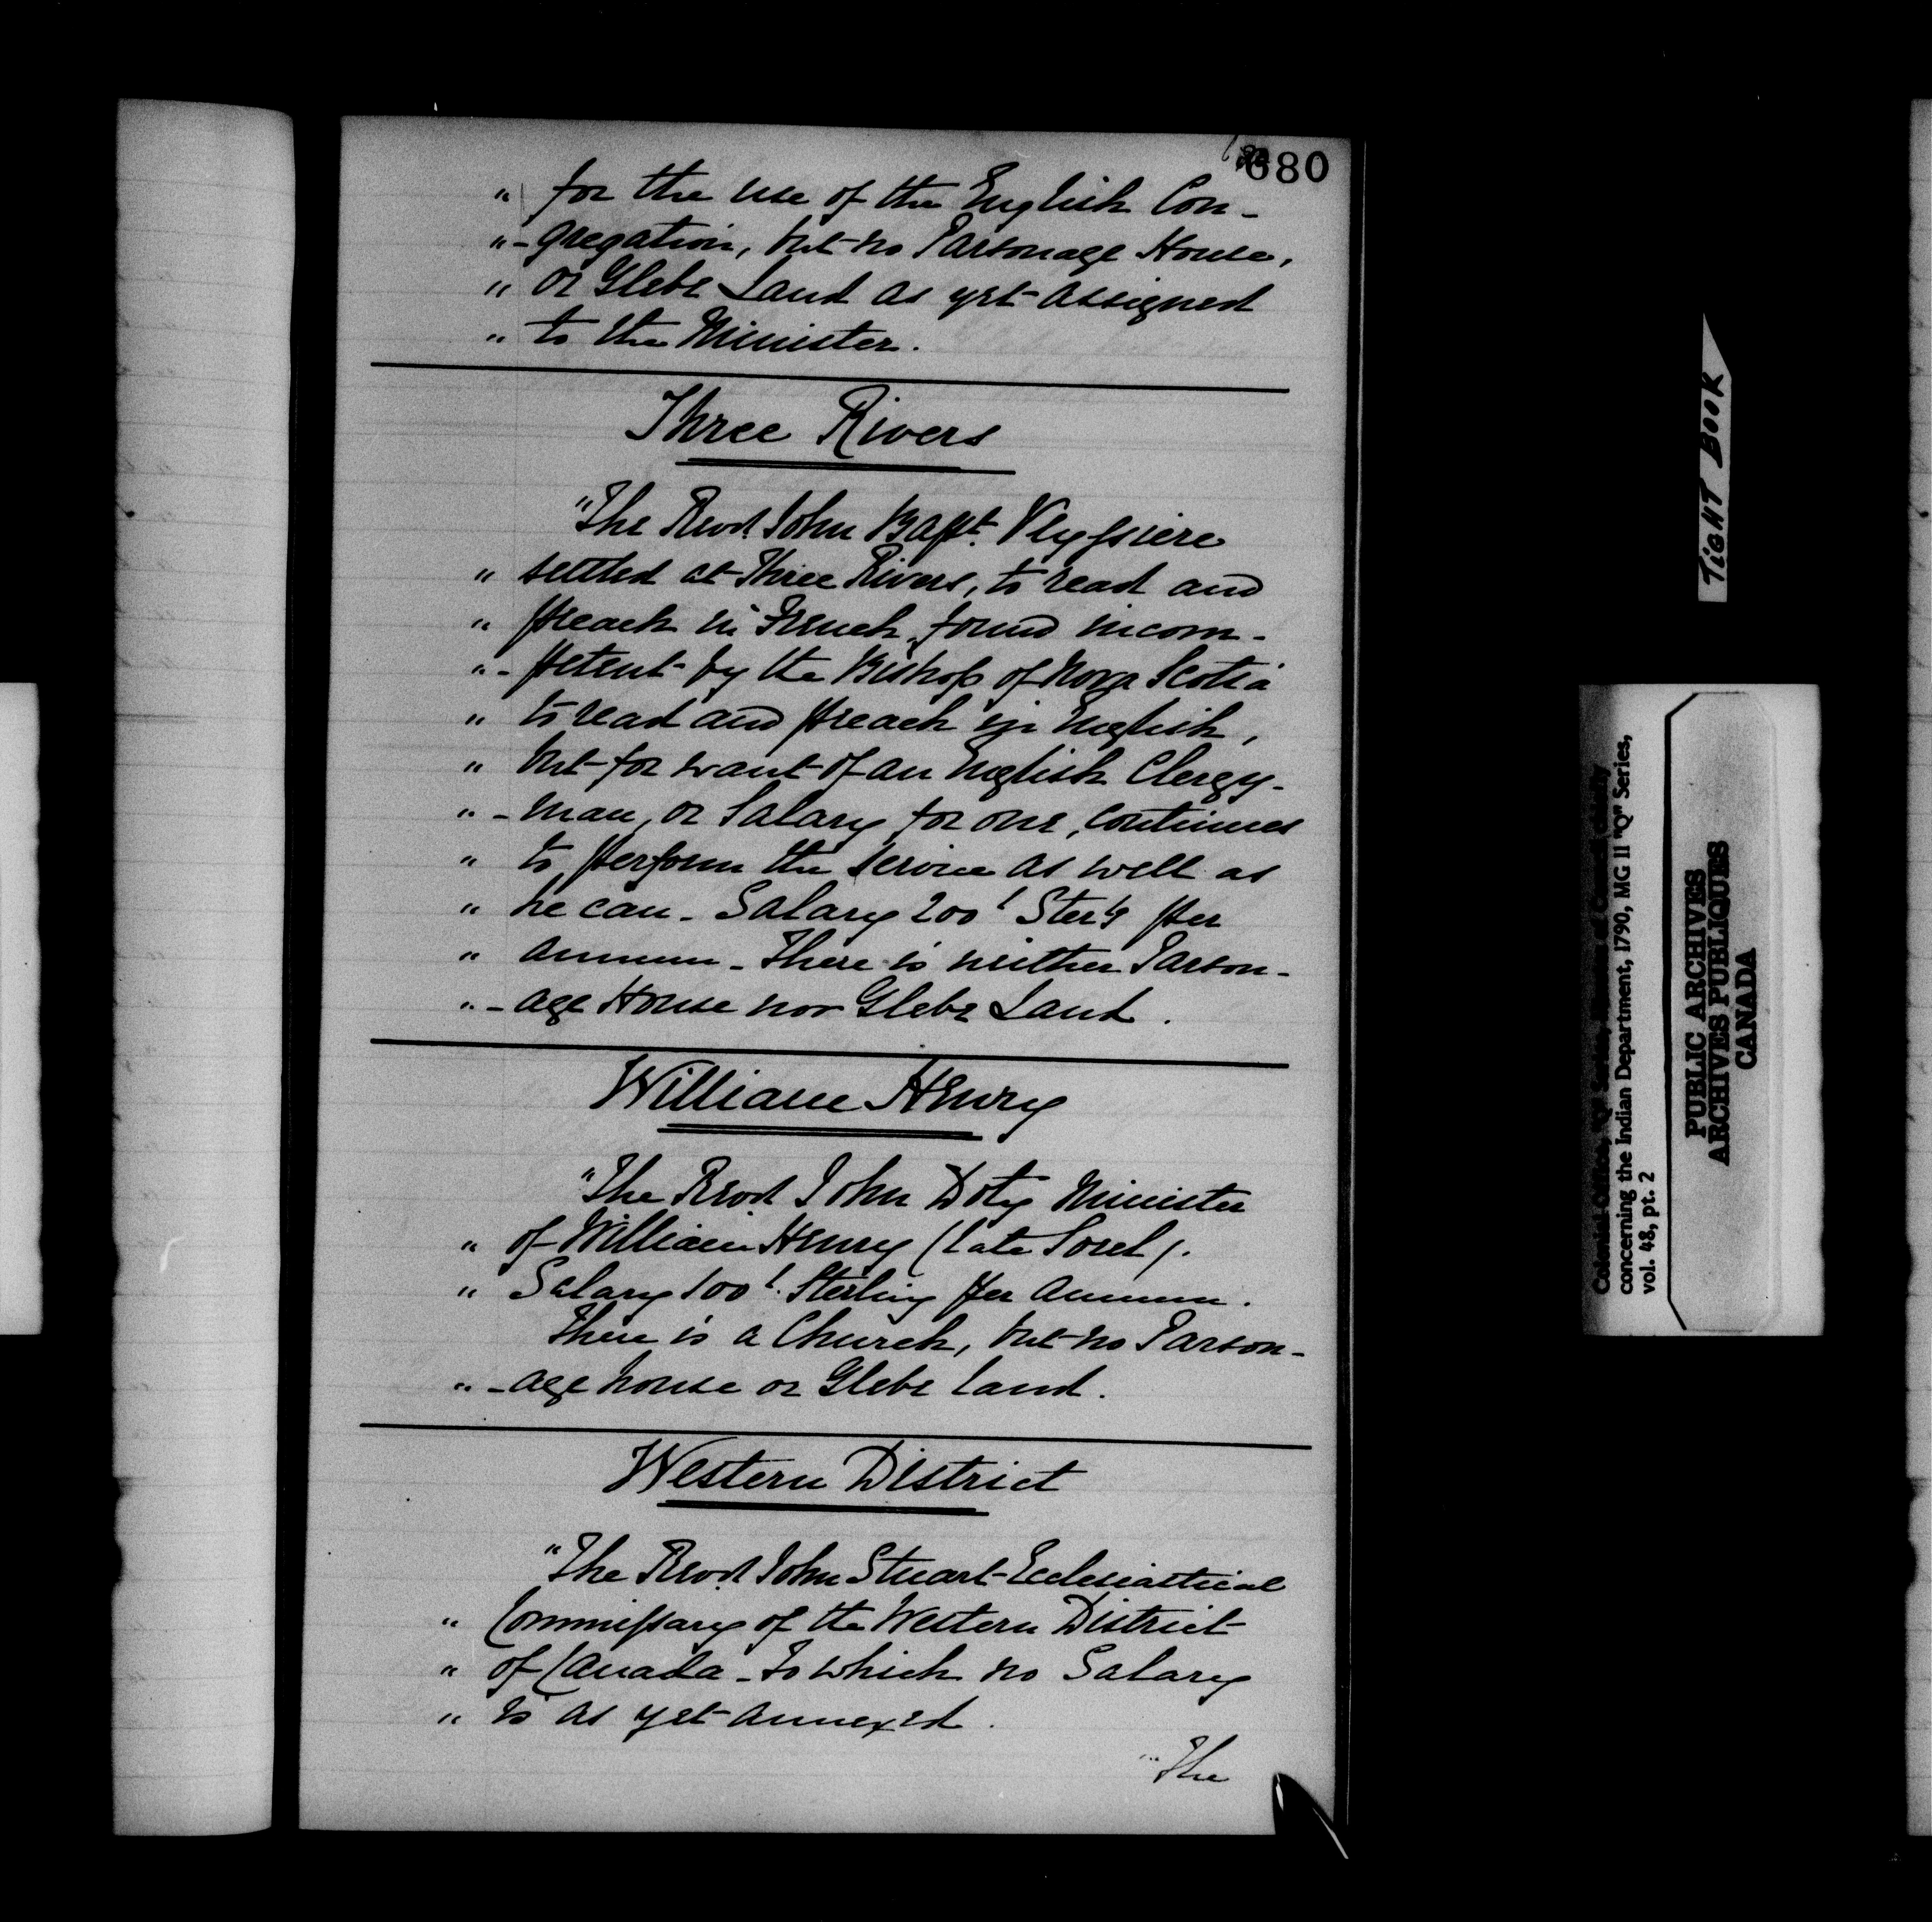 680
" for the use of the English Con-
"-gregation, but no Parsonage House,
" or Glebe Land as yet assigned
" to the Minister.
Three Rivers
"The Revd. John Bapt. Veyssiere
" settled at Three Rivers, to read and
" preach in French, found incom-
"-petent by the Bishop of Nova Scotia
" to read and preach in English,
" but for want of an English Clergy-
"-man, or Salary for one, continues
" to perform the service as well as
" he can - Salary 200£ Ster'g per
" annum - There is neither Parson-
"-age House nor Glebe Land.
William Henry
"The Revd John Doty Minister
" of William Henry (late Sorel).
" Salary 100£. Sterling per annum.
There is a Church, but no Parson-
"-age house or Glebe land.
Western District
"The Revd. John Stuart - Ecclesiastical
" Commissary of the Western District
" of Canada - to which no Salary
" is as yet annexed.
"The
TIGHT BOOK
Colonial Office, "Q" Series,
concerning the Indian Department, 1790, MG 11 "Q" Series,
vol. 48, pt. 2
PUBLIC ARCHIVES
ARCHIVES PUBLIQUES
CANADA